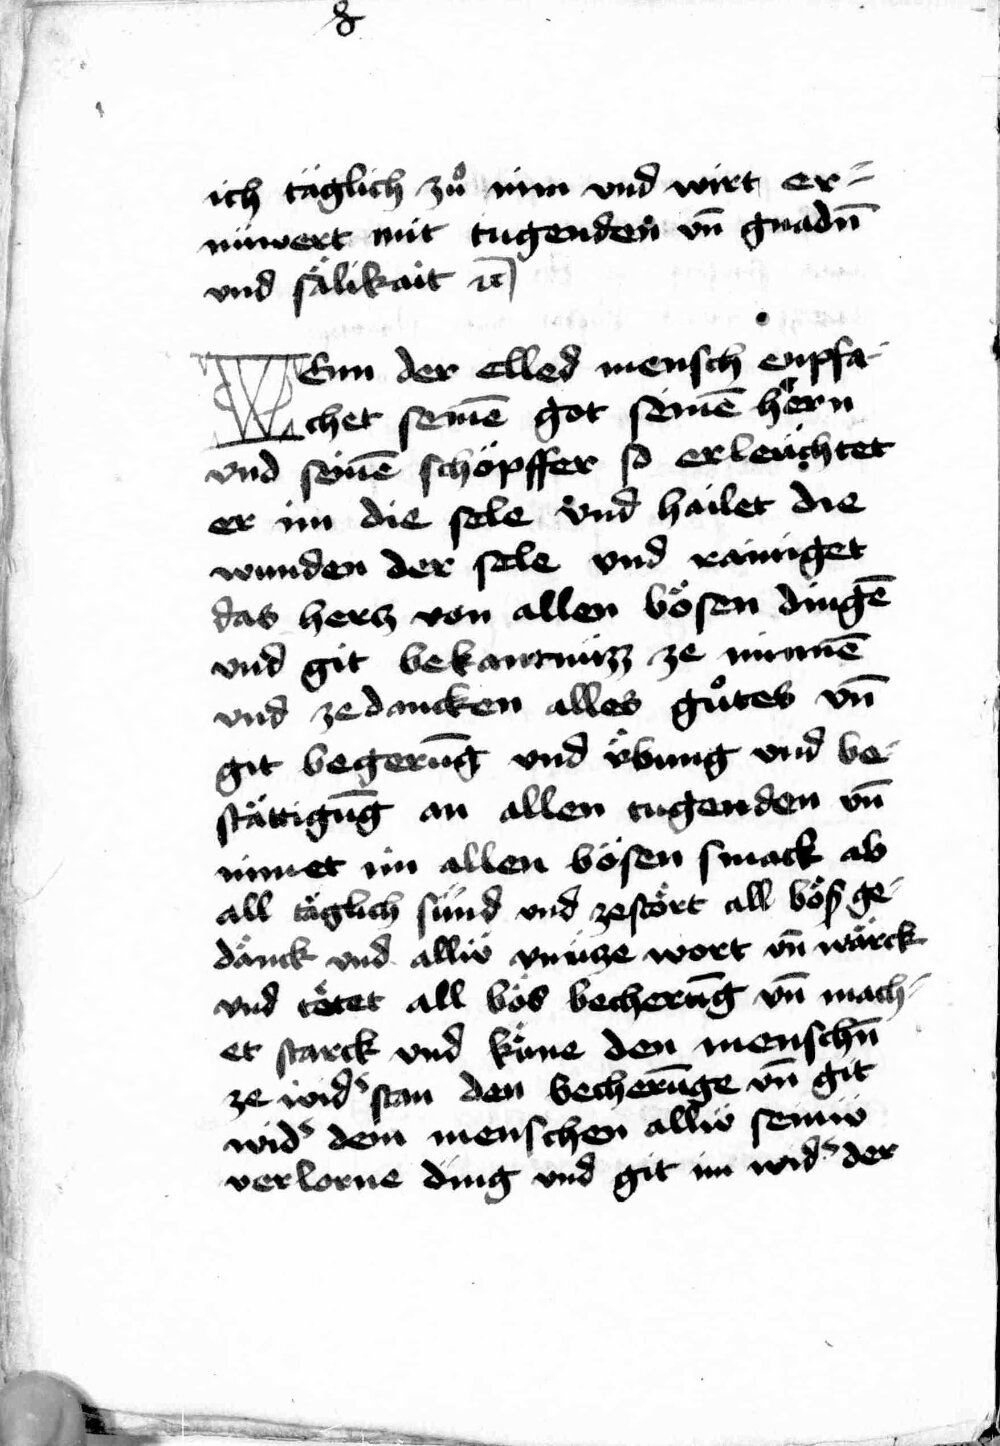 8
ich täglich zů nim vnd wirt er=
nüwert mit tugenden vn̄ gnadn̄
vnd sälikait ꝛc̄
WEnn der elled mensch enpfa-
chet seinē got seinē hern
vnd seinē schöpffer so erleüchtet
er im die sele vnd hailet die
wunden der sele vnd rainiget
das hercz von allen bösen dingē
vnd git bekantnüzz ze minnē
vnd ze dancken alles gůtes vn̄
git begerūg vnd v̈bung vnd be-
stättigūg an allen tugenden vn̄
nimet im allen bösen smack ab
all täglich sünd vnd zestört all böß ge-
dänck vnd alliv̈ vnücze wort vn̄ wärck
vnd tötet all bös becherūg vn̄ mach-
et starck vnd küne den menschn̄
ze widˢ stan den becherūge vn̄ git
widˢ dem menschen alliv̈ seiniv̈
verlorne ding vnd git im widˢ der